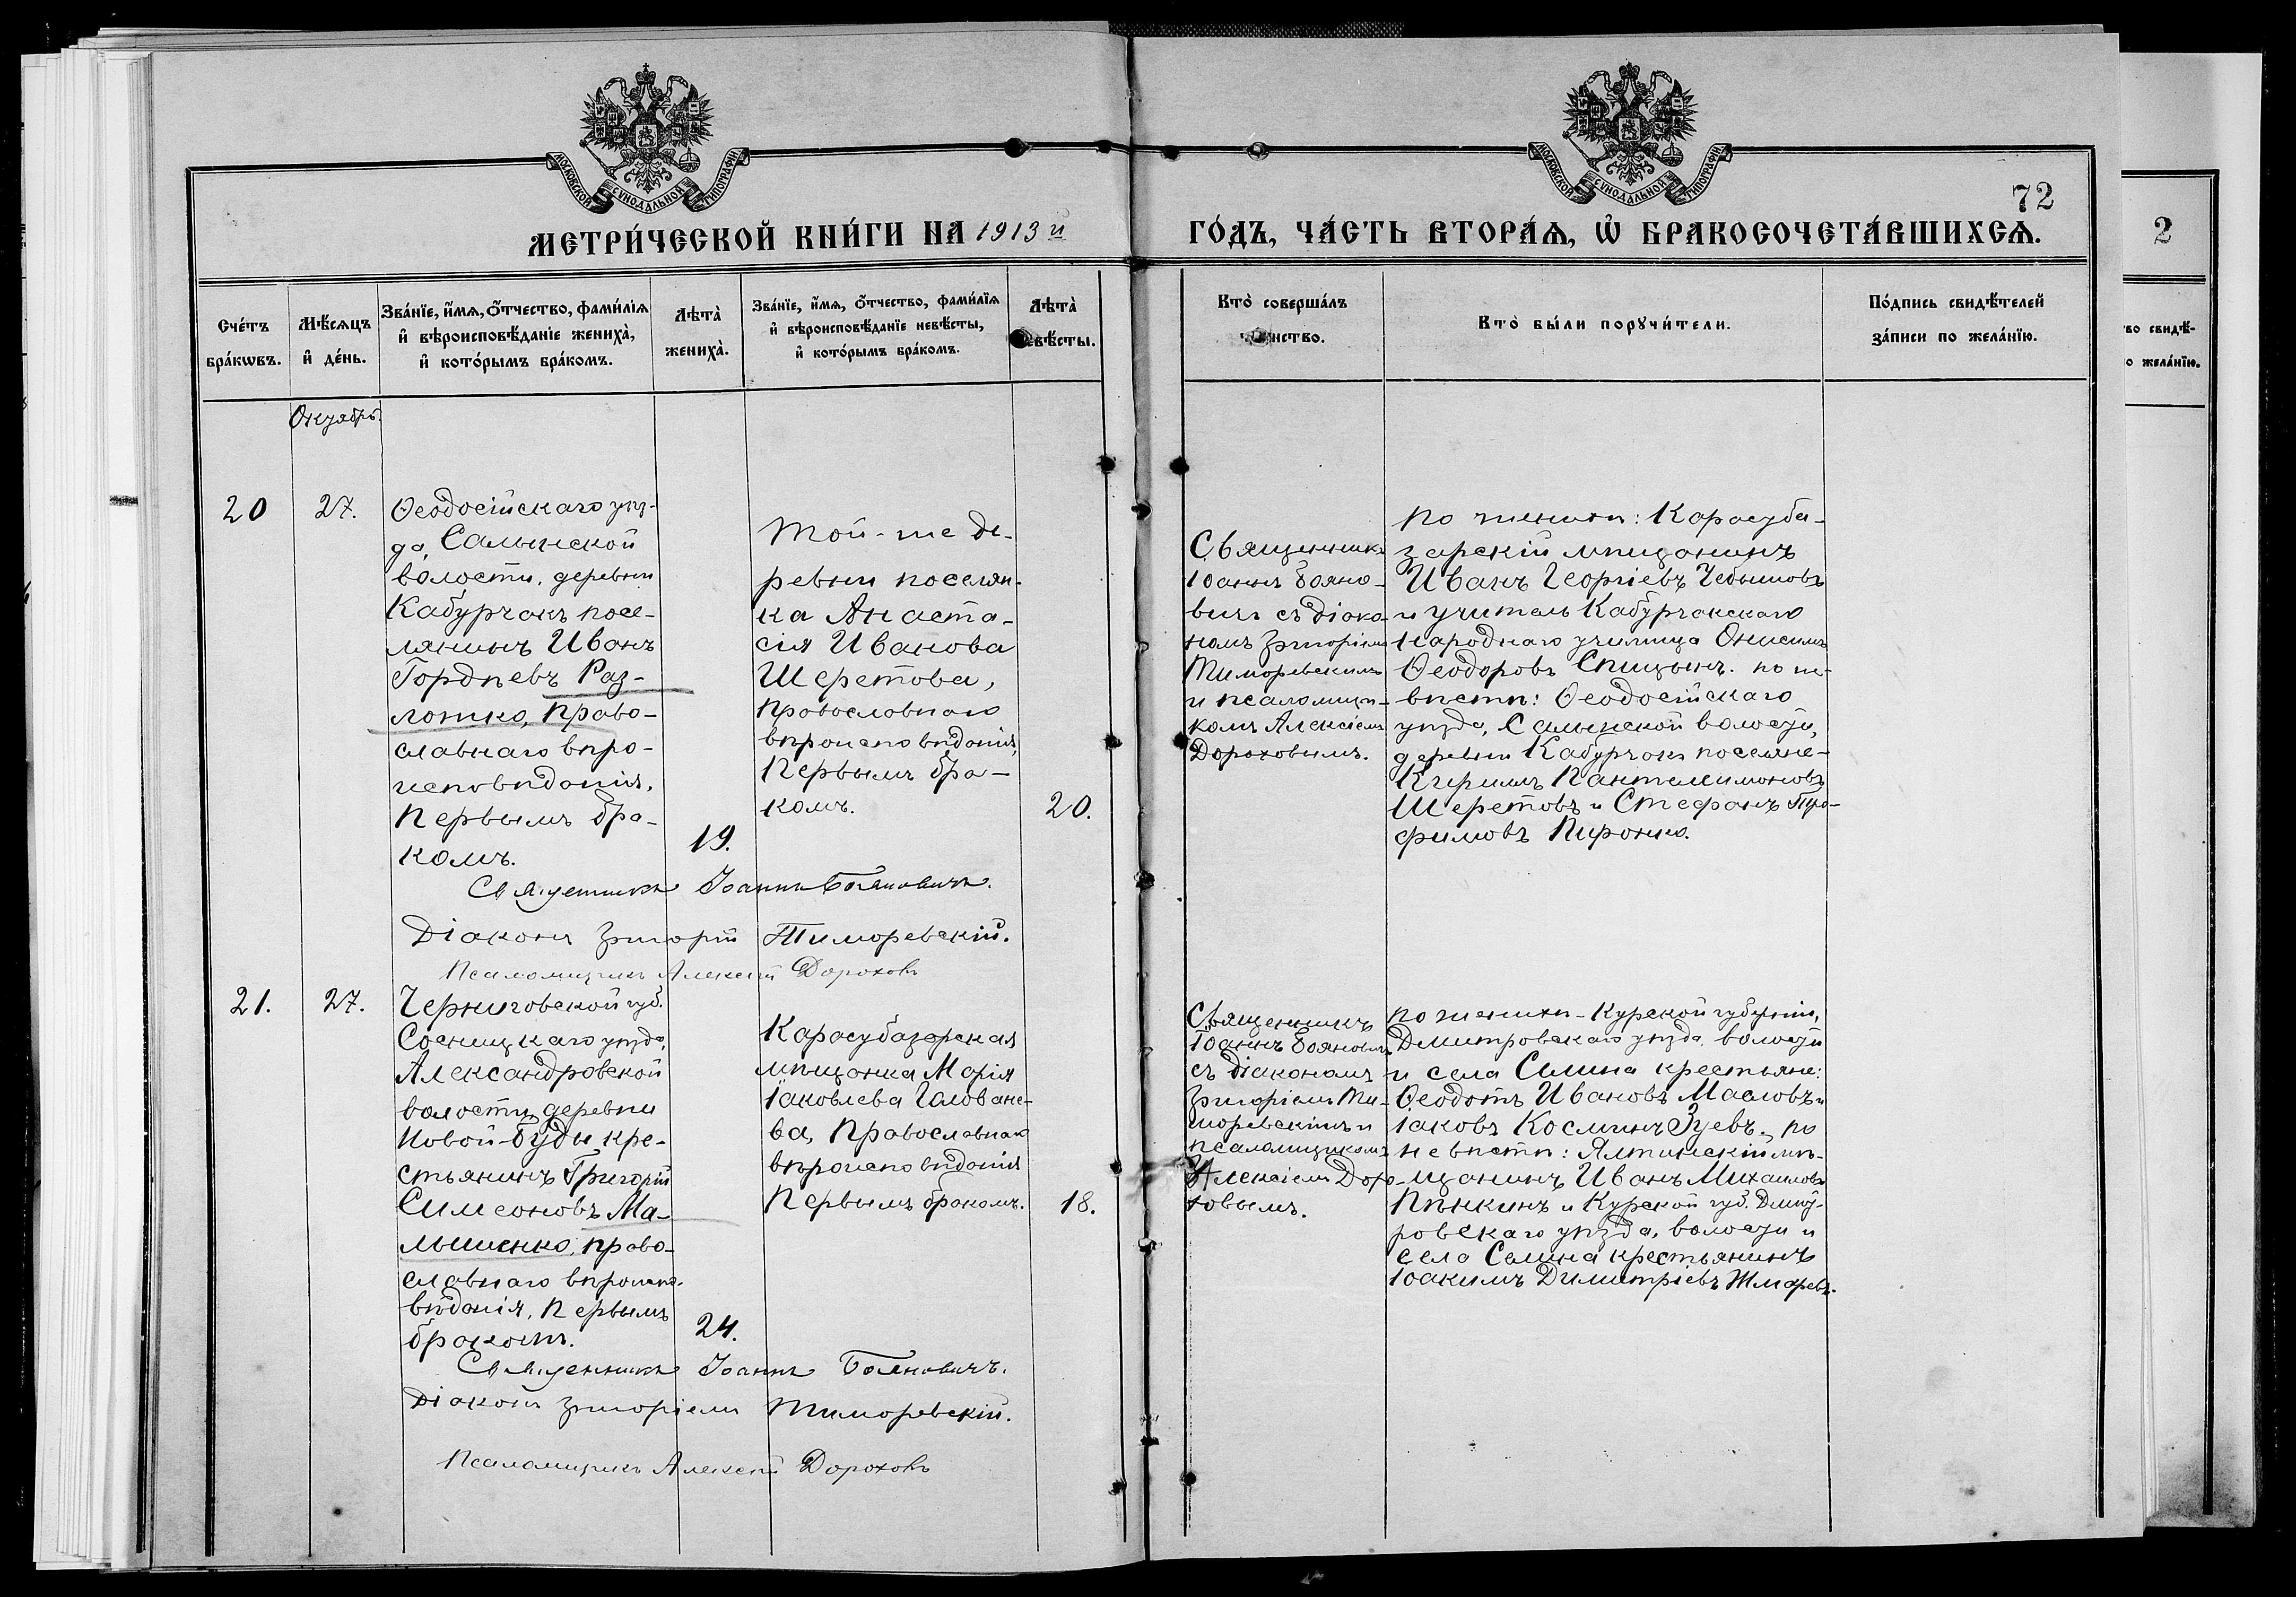 МОСКОВСКОЙ СѴНОДАЛЬНОЙ ТИПОГРАФІИ
МОСКОВСКОЙ СѴНОДАЛЬНОЙ ТИПОГРАФІИ
72
МЕТРИ́ЧЕСКОЙ КНИ́ГИ НА 1913й
ГО́ДЪ, ЧА́СТЬ ВТОРА́Ѧ, Ѽ БРАКОСОЧЕТА́ВШИХСѦ.
2
Сче́тъ
бра́кѡвъ.
Мѣ́сѧцъ
и҆ де́нь.
Зва́нїе, и҆́мѧ, ѻ҆́тчество, фами́лїѧ
и҆ вѣроисповѣ́данїе жениха̀,
и҆ кото́рымъ бра́комъ.
Лѣта̀
жениха̀.
Зва́нїе, и҆́мѧ, ѻ҆́тчество, фами́лїѧ
и҆ вѣроисповѣ́данїе невѣ́сты,
и҆ кото́рымъ бра́комъ.
Лѣта̀
невѣ́сты.
Кто̀ соверша́лъ
таинство.
Кто̀ бы́ли порꙋчи́тели.
По́дпись свидѣ́телей
за́писи по жела́нїю.
во свидѣ́-
о жела́нїю.
Октябрь.
20
27.
Ѳеодосійскаго уѣз-
да, Салынской
волости, деревни
Кабурчакъ посе-
лянинъ Иванъ
Гордѣевъ Раз-
ложко, право-
славнаго вѣро-
исповѣданія,
первымъ бра-
комъ.
19.
Той-же де-
ревни поселян-
ка Анаста-
сія Иванова
Шеретова,
православнаго
вѣроисповѣданія,
первымъ бра-
комъ.
20.
Священникъ
Іоаннъ Бояно-
вичъ съ діако-
номъ Григоріем
Тиморевскимъ
и псаломщи-
комъ Алексіемъ
Дороховымъ.
по женихѣ: Карасуба-
зарскій мѣщанинъ
Иванъ Георгіевъ Чебышовъ
и учитель Кабурчакскаго
народнаго училища Онисимъ
Ѳеодоровъ Спицынъ. по не-
вѣстѣ: Ѳеодосійскаго
уѣзда, Салынской волости,
деревни Кабурчакъ поселяне-
Кириллъ Пантелеимоновъ
Шеретовъ и Стефанъ Тро-
фимовъ Пирожко.
Священникъ Іоаннъ Бояновичъ.
Діаконъ Григорій Тиморевскій.
Псаломщикъ Алексѣй Дороховъ
21.
27.
Черниговской губ.
Сосницкаго уѣзда,
Александровской
волости, деревни
Новой-Буды кре-
стьянинъ Григорій
Симеоновъ Ма-
лышенко, право-
славнаго вѣроиспо-
вѣданія, первымъ
бракомъ.
24.
Карасубазарская
мѣщанка Марія
Іаковлева Голован-
ва, православнаго
вѣроисповѣданія
первымъ бракомъ.
18.
Священникъ
Іоаннъ Бояновичъ
съ діакономъ
Григоріемъ Ти-
моревскимъ и
псаломщикомъ
Алексіемъ Доро-
ховымъ.
по женихѣ-Курской губерніи,
Дмитровскаго уѣзда, волости
и села Селина крестьяне:
Ѳеодотъ Ивановъ Масловъ и
Іаковъ Косминъ Зуевъ. по
невѣстѣ: Ялтинскій мѣ-
щанинъ Иванъ Михаиловъ
Пѣнкинъ и Курской губ. Дмит-
ровскаго уѣзда, волости и
села Селина крестьянинъ
Іоакимъ Димитріевъ Жмаревъ.
Священникъ Іоаннъ Бояновичъ.
Діаконъ Григоріемъ Тиморевскій.
Псаломщикъ Алексѣй Дороховъ